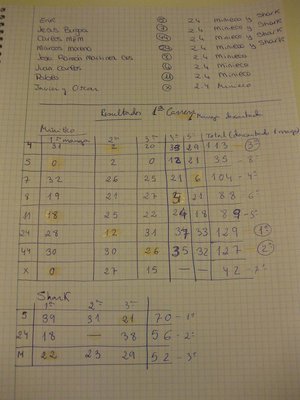 Eric 5 24 Mineco y Shark
Jesus Burgoa 7 24 Mineco y Shark
Carlos Mtem 24 Mineco y Shark
Marcos Moreno 24 Mineco y Shark
Jose Ramon Martinez 8 24 Mineco y Shark
Juan Carlos 4 24 Mineco
Rubén 11 24 Mineco
Javier y Oscar X 24 Mineco
Resultados 1ª Carrera Manga descartada
Mineco
1ª manga 2ª 3ª 4ª 5ª Total (descartada 1 manga)
4 31 2 20 33 29 113 - 3º
5 0 2 0 12 21 35 - 8º
7 32 26 25 21 6 104 - 4º
8 19 21 27 21 88 - 6º
11 18 25 22 24 18 89 - 5º
24 28 12 31 37 33 129 1º
44 30 30 26 35 32 127 2º
X 0 27 15 — — 42 - 7º
Shark
1ª 2ª 3ª
5 39 31 21 70 - 1º
24 18 — 38 56 - 2º
M 22 23 29 52 - 3º